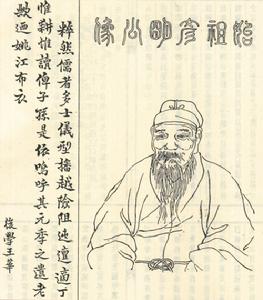 始祖彥明公像
粹然儒者多士儀型播越險阻迍邅適丁
惟耕惟讀俾子孫是依嗚呼其元季之遺老
歟迺姚江布衣
後學王華